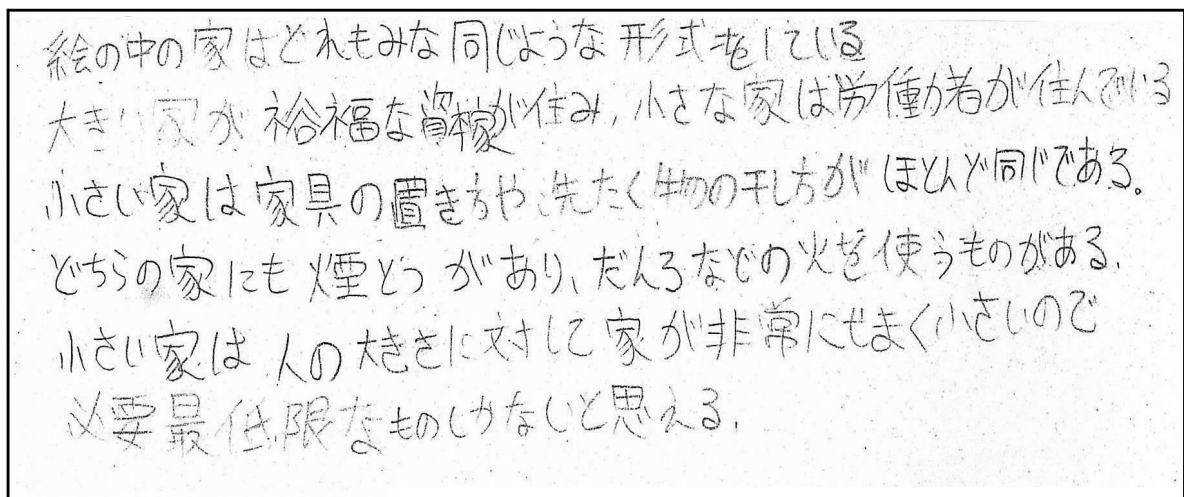 絵の中の家はどれもみな同じような形式をしている
大きい家が裕福な資本家が住み、小さな家は労働者が住んでいる
小さい家は家具の置き方や、洗たく物の干し方がほとんど同じである。
どちらの家にも煙とつがあり、だんろなどの火を使うものがある。
小さい家は人の大きさに対して家が非常にせまく小さいので
必要最低限なものしかないと思える。